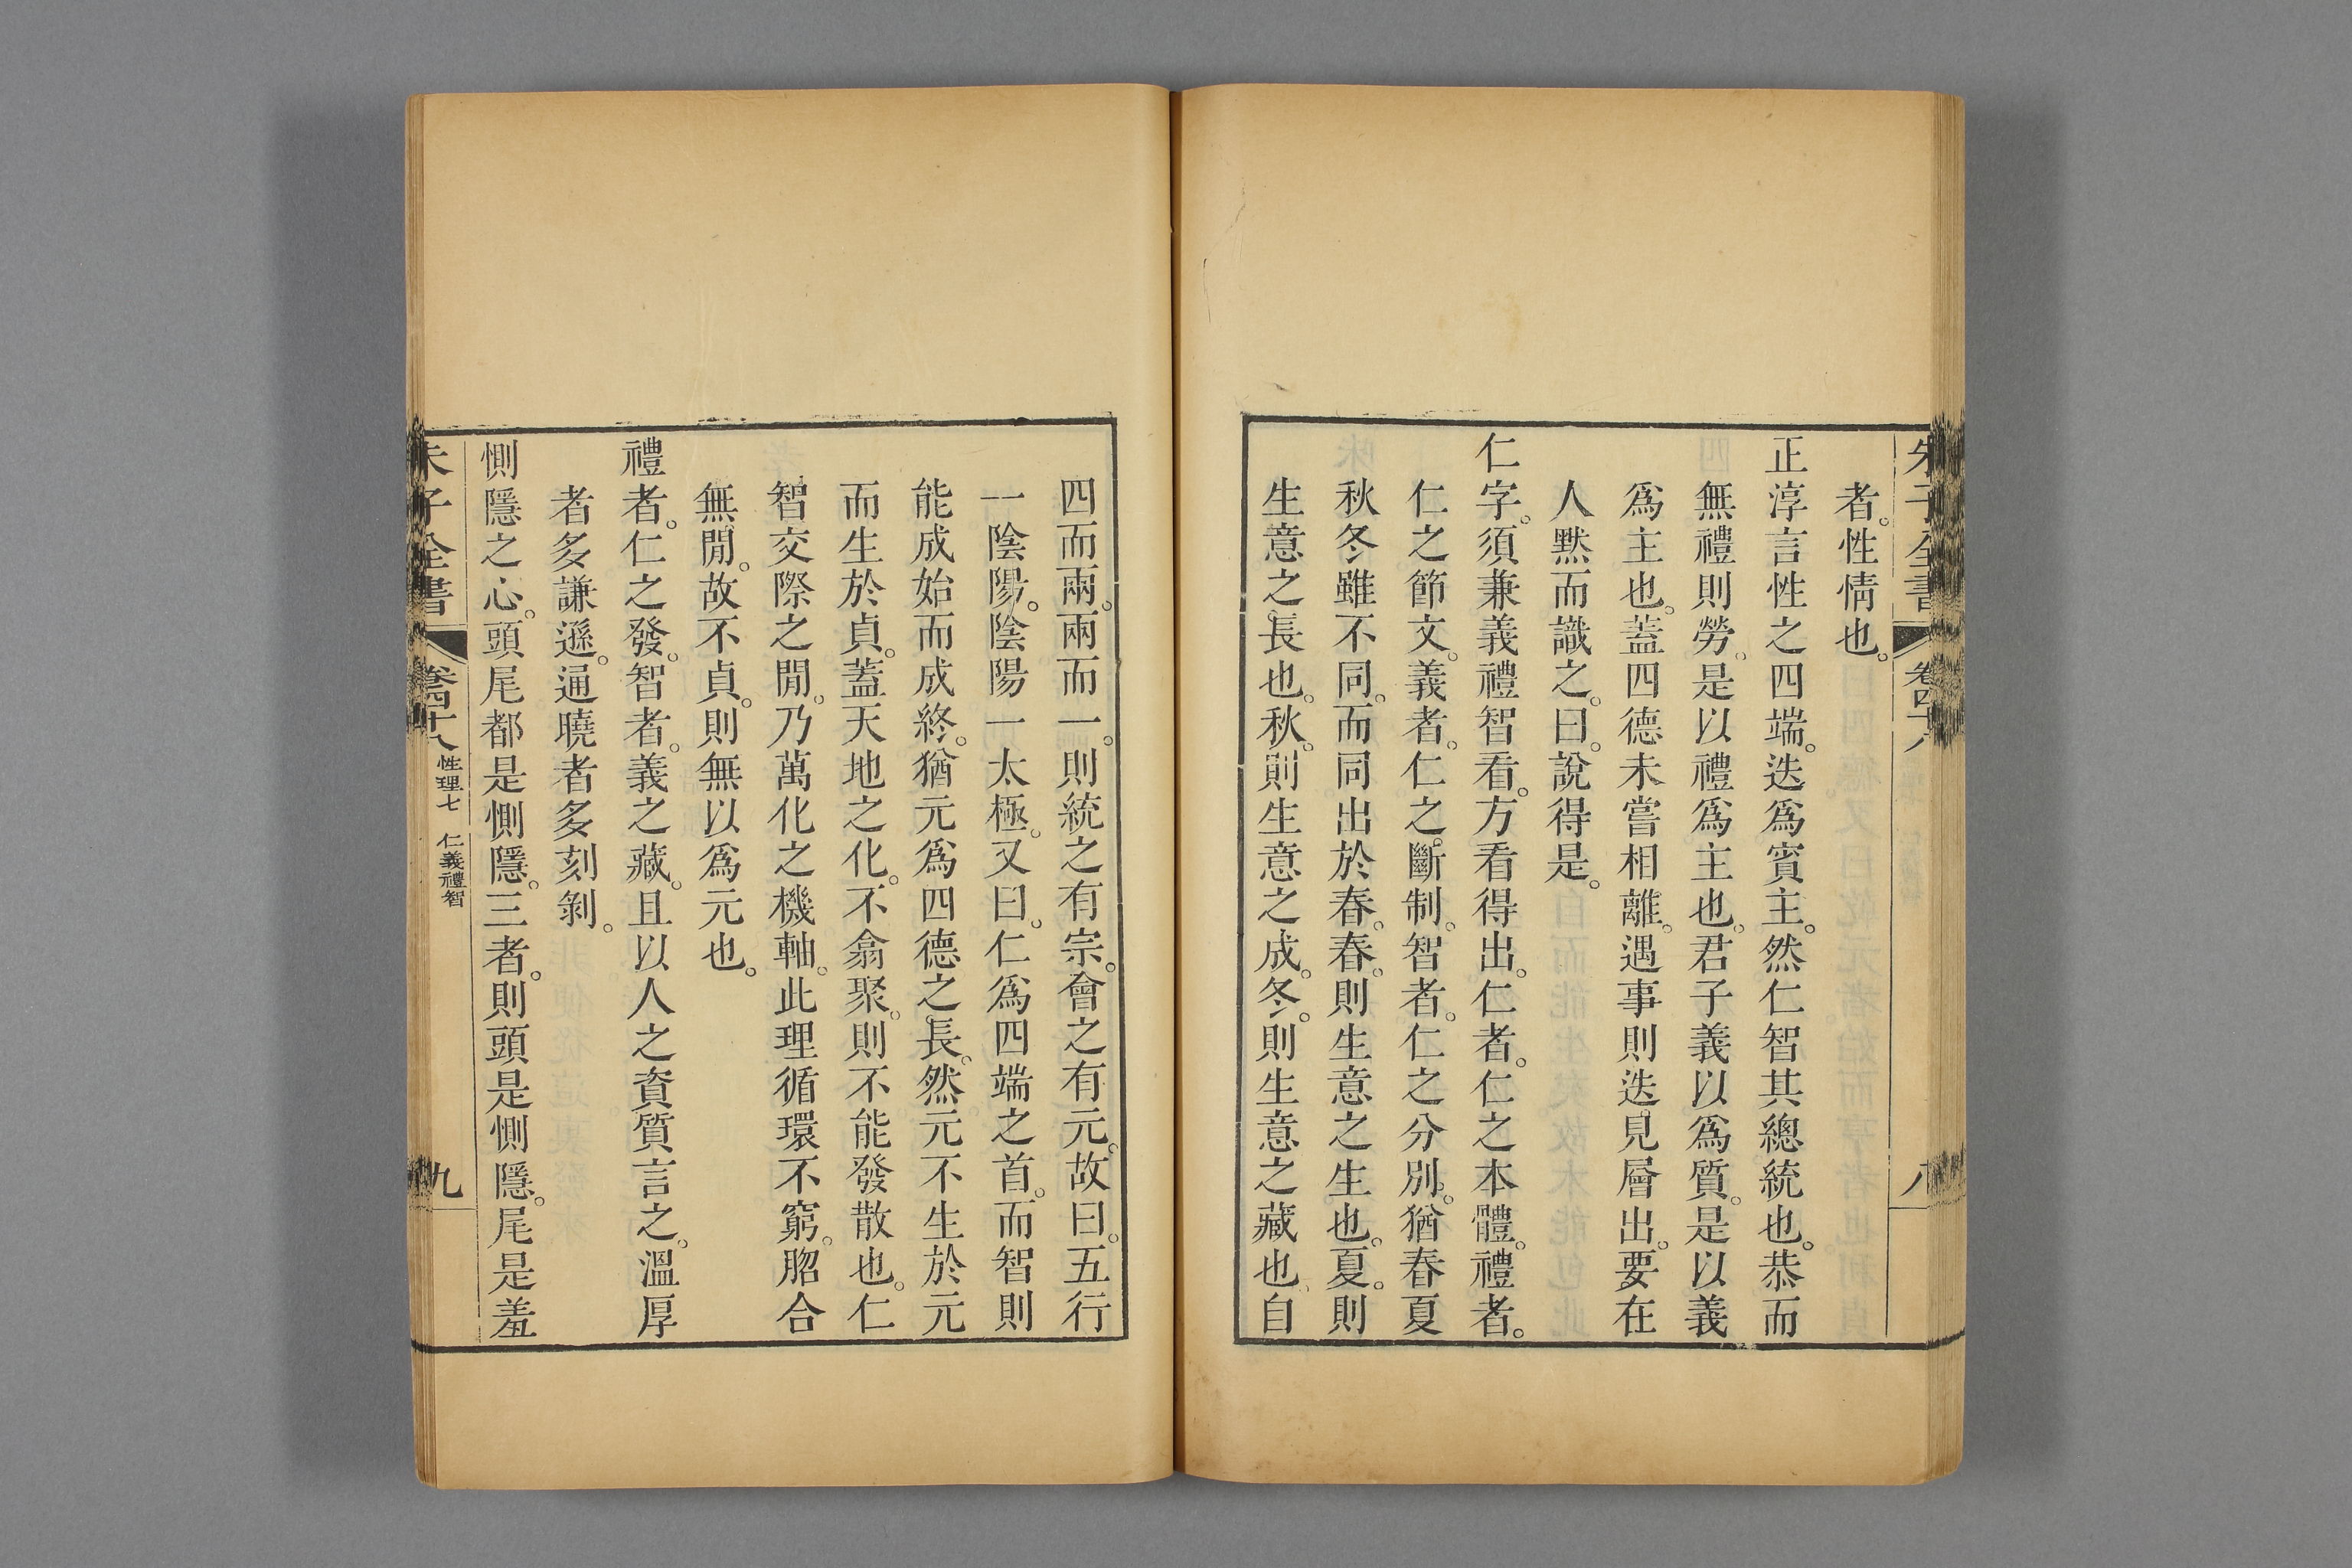 朱子全書 卷四十八 八
者。性情也。
正淳言性之四端。迭爲賓主。然仁智其總統也。恭而
無禮則勞。是以禮爲主也。君子義以爲質。是以義
爲主也。蓋四德未嘗相離。遇事則迭見層出。要在
人黙而識之。曰。說得是。
仁字。須兼義禮智看。方看得出。仁者。仁之本體。禮者。
仁之節文。義者。仁之斷制。智者。仁之分別。猶春夏
秋冬雖不同。而同出於春。春。則生意之生也。夏。則
生意之長也。秋。則生意之成。冬。則生意之藏也。自
四而兩。兩而一。則統之有宗。會之有元。故曰。五行
一陰陽。陰陽一太極。又曰。仁爲四端之首。而智則
能成始而成終。猶元爲四德之長。然元不生於元
而生於貞。蓋天地之化。不翕聚。則不能發散也。仁
智交際之閒。乃萬化之機軸。此理循環不窮。脗合
無閒。故不貞。則無以爲元也。
禮者。仁之發。智者。義之藏。且以人之資質言之。溫厚
者多謙遜。通曉者多刻剝。
惻隱之心。頭尾都是惻隱。三者。則頭是惻隱。尾是羞
朱子全書 卷四十八 性理七 仁義禮智 九